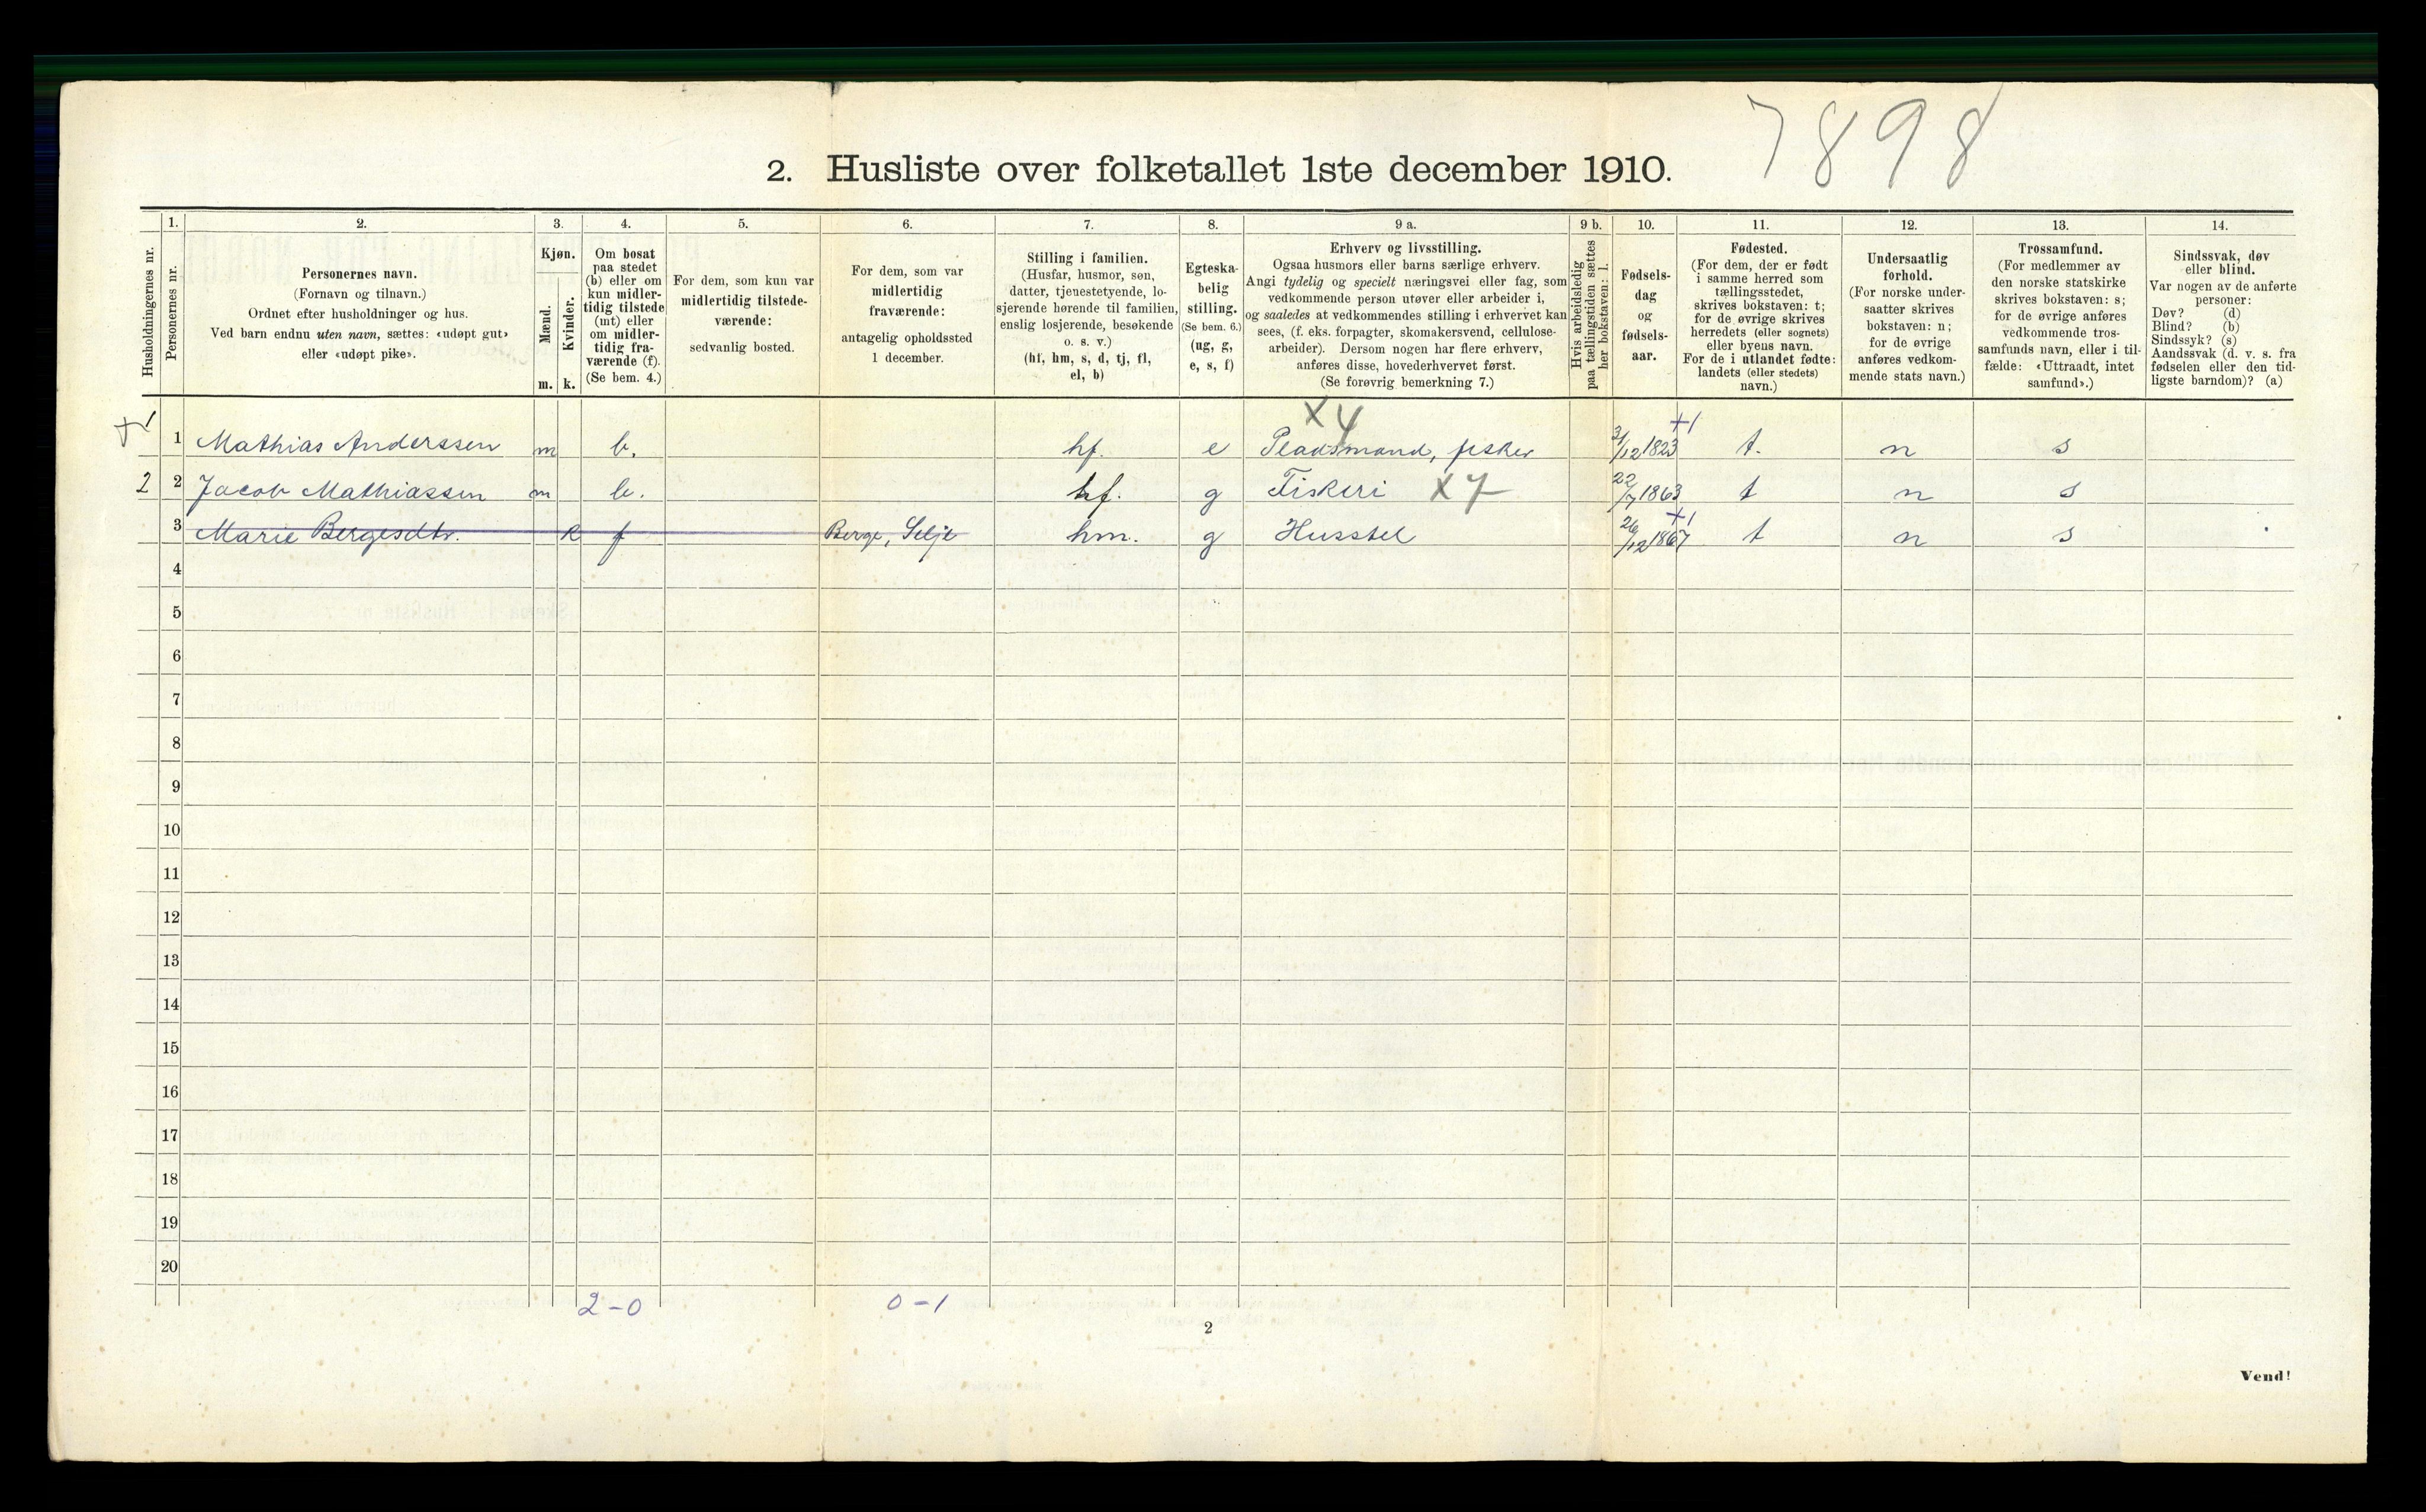 7898
2. Husliste over folketallet 1ste december 1910.
Husholdningernes nr.
1.
Personernes nr.
2.
Personernes navn.
(Fornavn og tilnavn.)
Ordnet efter husholdninger og hus.
Ved barn endnu uten navn, sættes: «udøpt gut»
eller «udøpt pike».
3.
Kjøn.
Mænd.
m.
Kvinder.
k.
4.
Om bosat
paa stedet
(b) eller om
kun midler-
tidig tilstede
(mt) eller
om midler-
tidig fra-
værende (f).
(Se bem. 4.)
5.
For dem, som kun var
midlertidig tilstede-
værende:
sedvanlig bosted.
6.
For dem, som var
midlertidig
fraværende:
antagelig opholdssted
1 december.
7.
Stilling i familien.
(Husfar, husmor, søn,
datter, tjenestetyende, lo-
sjerende hørende til familien,
enslig losjerende, besøkende
o. s. v.)
(hf, hm, s, d, tj, fl,
el, b)
8.
Egteska-
belig
stilling.
(Se bem. 6.)
(ug, g,
e, s, f)
9 a.
Erhverv og livsstilling.
Ogsaa husmors eller barns særlige erhverv.
Angi tydelig og specielt næringsvei eller fag, som
vedkommende person utøver eller arbeider i,
og saaledes at vedkommendes stilling i erhvervet kan
sees, (f. eks. forpagter, skomakersvend, cellulose-
arbeider). Dersom nogen har flere erhverv,
anføres disse, hovederhvervet først.
(Se forøvrig bemerkning 7.)
9 b.
Hvis arbeidsledig
paa tællingstiden sættes
her bokstaven: l.
10.
Fødsels-
dag
og
fødsels-
aar.
11.
Fødested.
(For dem, der er født
i samme herred som
tællingsstedet,
skrives bokstaven: t;
for de øvrige skrives
herredets (eller sognets)
eller byens navn.
For de i utlandet fødte:
landets (eller stedets)
navn.)
12.
Undersaatlig
forhold.
(For norske under-
saatter skrives
bokstaven: n;
for de øvrige
anføres vedkom-
mende stats navn.)
13.
Trossamfund.
(For medlemmer av
den norske statskirke
skrives bokstaven: s;
for de øvrige anføres
vedkommende tros-
samfunds navn, eller i til-
fælde: «Uttraadt, intet
samfund».)
14.
Sindssvak, døv
eller blind.
Var nogen av de anførte
personer:
Døv? (d)
Blind? (b)
Sindssyk? (s)
Aandssvak (d. v. s. fra
fødselen eller den tid-
ligste barndom)? (a)
X 4
+1
1 1 Mathias Anderssen m b. hf. e Pladsmand, fisker 3/12 1823 t. n s
2 2 Jacob Mathiassen m b. hf. g Fiskeri X 7 22/7 1863 t n s
+1
3 Marie Bergesdtr. k f Berge, Selje hm. g Husstel 26/12 1867 t n s
4
5
6
7
8
9
10
11
12
13
14
15
16
17
18
19
20
2-0 0-1
2
Vend!